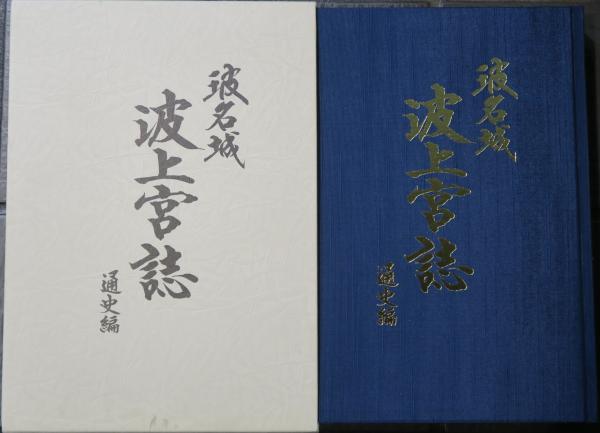 玻名城
波上宮誌
通史編
玻名城
波上宮誌
通史編